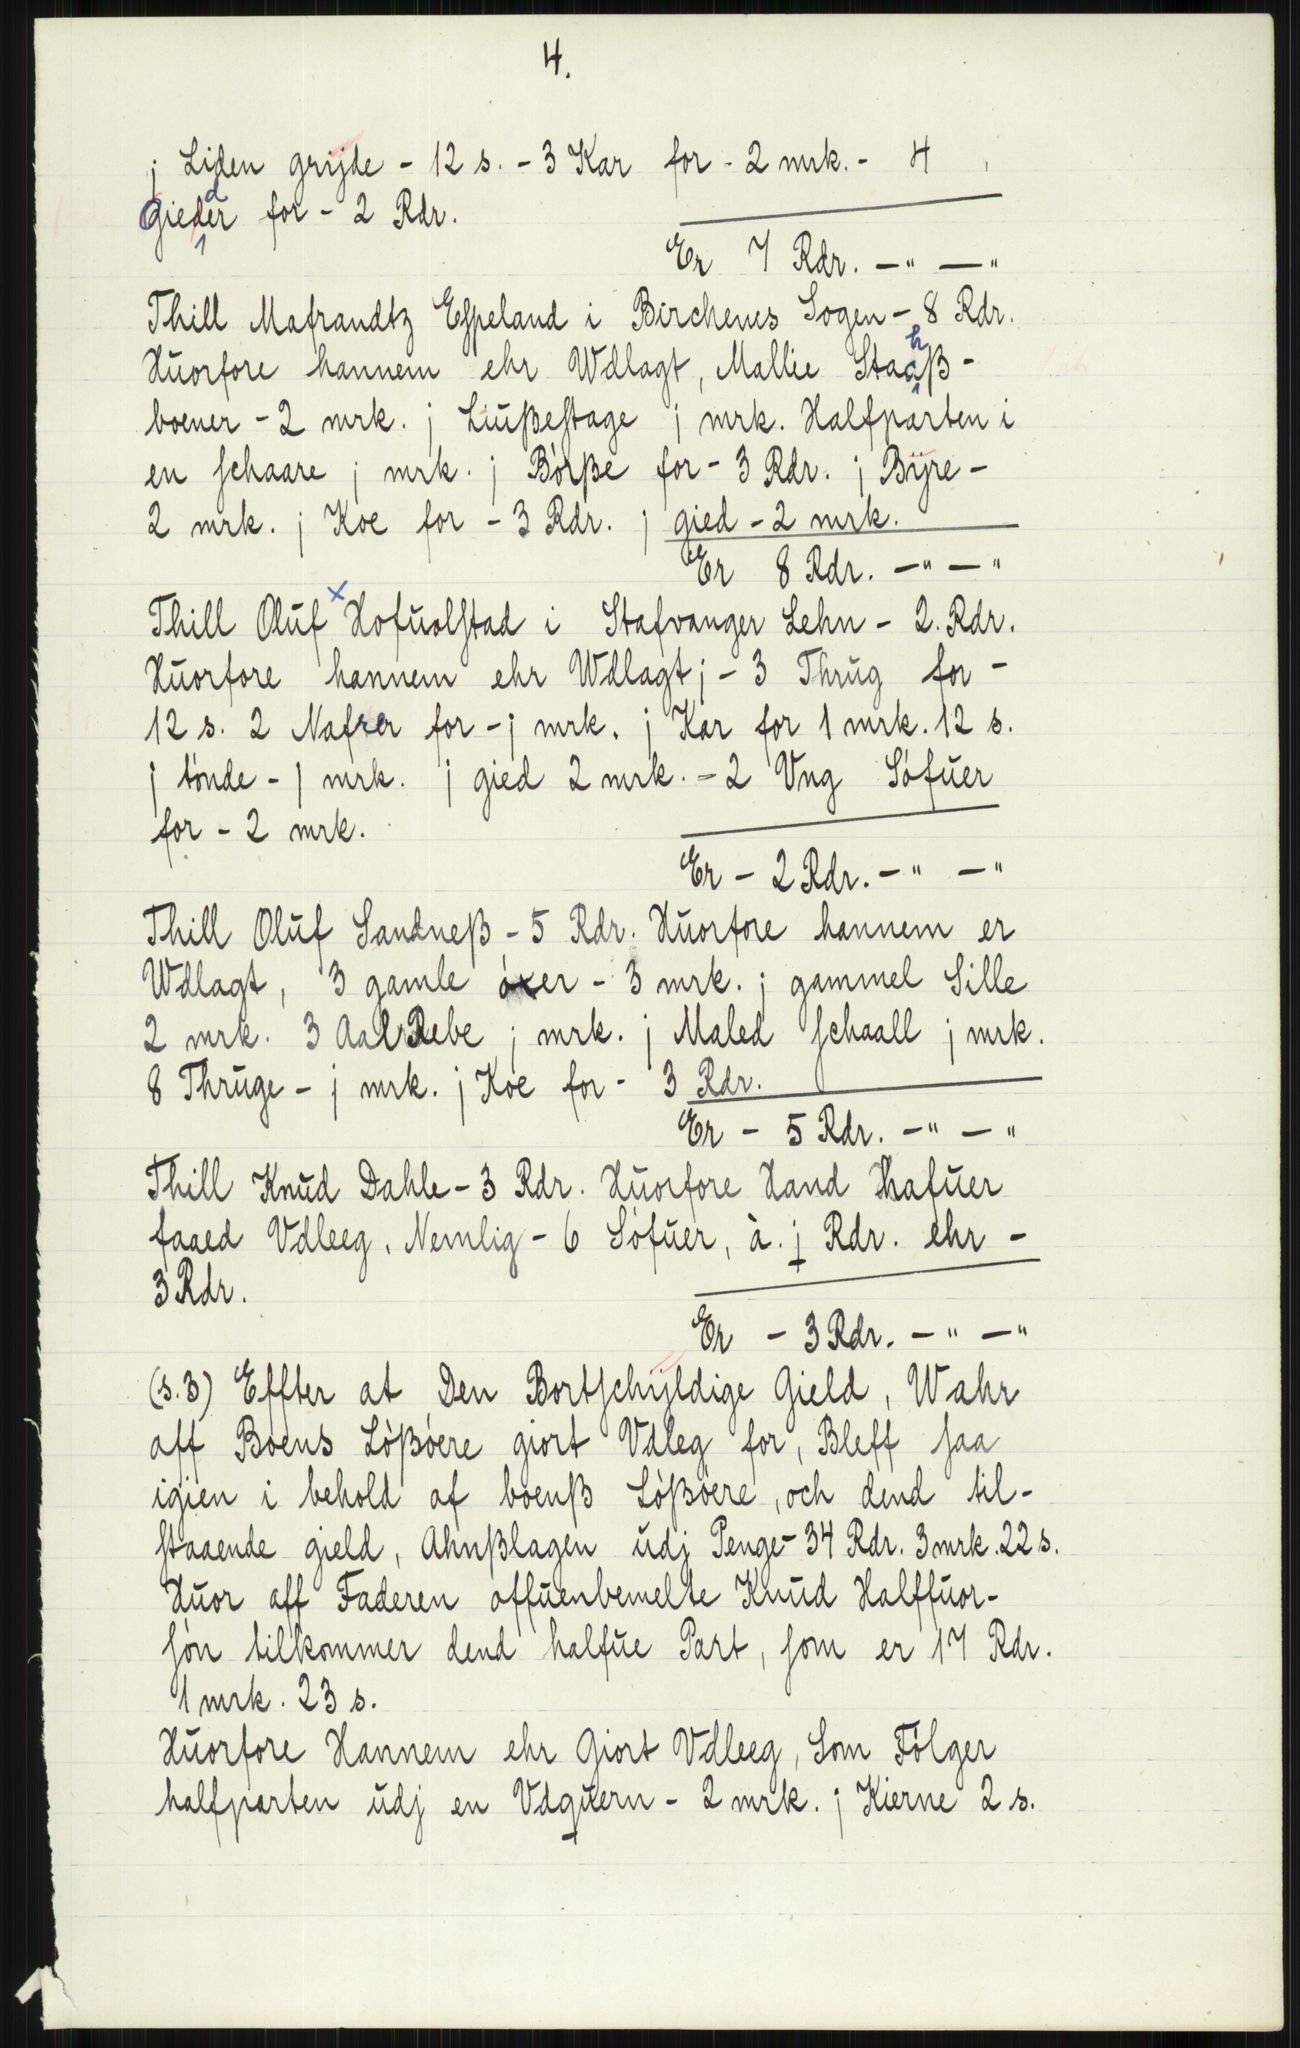 4.
j Liden grijde - 12 s. - 3 Kar for - 2 mrk. - 4
Giedder for - 2 Rdr.
Er 7 Rdr. -" -"
Thill Mafrandtz Espeland i Birchenes Sogen - 8 Rdr.
Huorfore hannem ehr Wdlagt, Mallie Stachß-
boener - 2 mrk. j Liußestage j mrk. Halfparten i
en schaare j mrk. j Börße for - 3 Rdr. j Bijre -
2 mrk. j Koe for - 3 Rdr. j gied - 2 mrk.
Er 8 Rdr. -" -"
Thill Oluf x Hofuolstad i Stafvanger Lehn - 2. Rdr.
Huorfore hannem ehr Wdlagt; - 3 Thrug for -
12 s. 2 Nafrer for - j mrk. j Kar for 1 mrk. 12 s.
j tönde - j mrk. j gied 2 mrk. - 2 Vng Söfuer
for - 2 mrk.
Er - 2 Rdr. -" -"
Thill Oluf Sandneß - 5 Rdr. Huorfore hannem er
Wdlagt, 3 gamle öxer - 3 mrk. j gammel Sille
2 mrk. 3 Aal Rebe j mrk. j Maled schaall j mrk.
8 Thruge - j mrk. j Koe for - 3 Rdr.
Er - 5 Rdr. -" -"
Thill Knud Dahle - 3 Rdr. Huorfore Hand Hafuer
faaed Vdleeg, Nemlig - 6 Söfuer, à. j Rdr. ehr -
3 Rdr.
Er - 3 Rdr. -" -"
(s.3) Effter at Den Bortschijldige Gield, Wahr
aff Boens Lößöere giort Vdleg for, Bleff saa
igien i behold af boenß Lößöere, och dend til-
staaende gield, Ahnßlagen udj Penge - 34 Rdr. 3 mrk. 22 s.
Huor aff Faderen offuenbemelte Knud Halffuor-
sön tilkommer dend halfue Part, som er 17 Rdr.
1 mrk. 23 s.
Huorfore Hannem ehr Giort Vdleeg, Som Fölger
halfparten udj en Vdquern - 2 mrk. j Kierne 2 s.